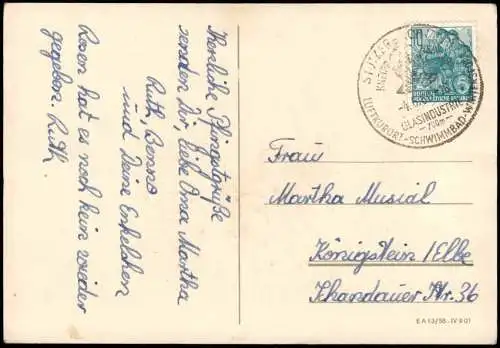 Herzliche Pfingstgrüße
senden Dir, liebe Oma Martha
Ruth, Benno
und Deine Enkelchen
Rosen hat es noch kein wieder
gegeben. Ruth
10
DEUTSCHE
STÜTZER
GLASINDUSTRIE
LUFTKURORT-SCHWIMMBAD-WINTER
Frau
Martha Musial
Königstein/Elbe
Schandauer Str. 36
EA 13/58 - IV 9 01